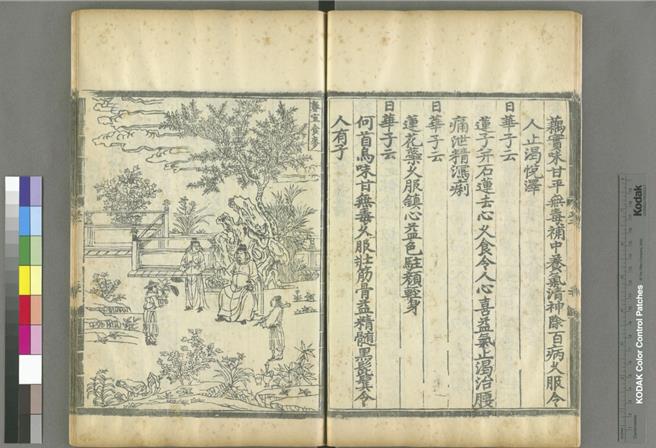 藕實味甘平無毒補中養氣清神除百病久服令
人止渴悅澤
日華子云
蓮子并石蓮去心久食令人心喜益氣止渴治腰
痛泄精瀉痢
日華子云
蓮花蘂久服鎮心益色駐顏輕身
日華子云
何首烏味甘無毒久服壯筋骨益精髓黑髭鬢令
人有子
Kodak
KODAK Color Control Patches